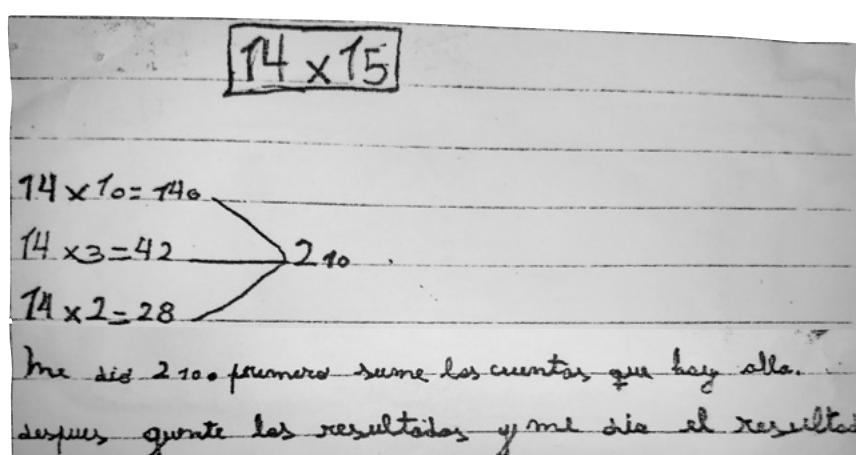 14 x 15
14 x 10 = 140
14 x 3 = 42 210
14 x 2 = 28
Me dio 210. primero sume las cuentas que hay alla.
despues gunte los resultados y me dio el resultad